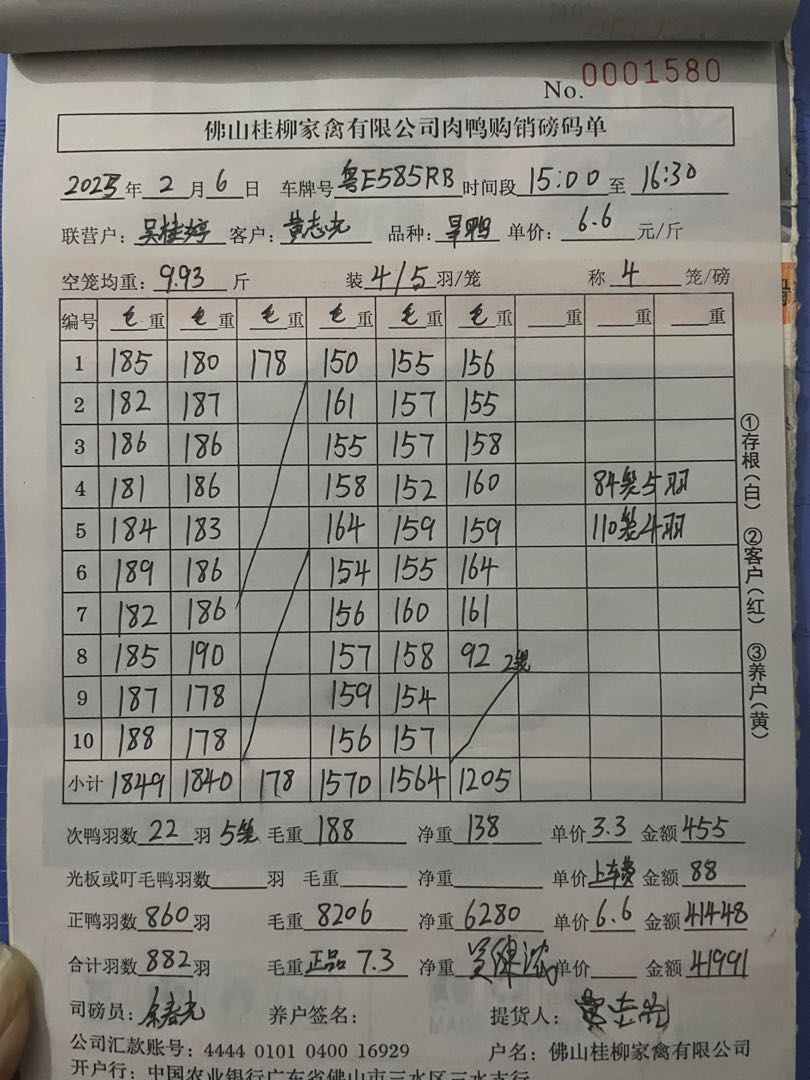 No. 0001580
佛山桂柳家禽有限公司肉鸭购销磅码单
2025年 2 月 6 日 车牌号 粤E585RB 时间段 15:00 至 16:30
联营户: 吴桂婷 客户: 黄志光 品种: 旱鸭 单价: 6.6 元/斤
空笼均重: 9.93 斤 装 4/5 羽/笼 称 4 笼/磅
编号 毛重 毛重 毛重 毛重 毛重 毛重 重 重 重
1 185 180 178 150 155 156
2 182 187 161 157 155
3 186 186 155 157 158
4 181 186 158 152 160 84笼5羽
5 184 183 164 159 159 110笼4羽
6 189 186 154 155 164
7 182 186 156 160 161
8 185 190 157 158 92 2笼
9 187 178 159 154
10 188 178 156 157
小计 1849 1840 178 1570 1564 1205
次鸭羽数 22 羽 5笼 毛重 188 净重 138 单价 3.3 金额 455
光板或叮毛鸭羽数 羽 毛重 净重 单价 上车费 金额 88
正鸭羽数 860 羽 毛重 8206 净重 6280 单价 6.6 金额 41448
合计羽数 882 羽 毛重 正品 7.3 净重 单价 金额 41991
司磅员: 养户签名: 提货人:
公司汇款账号: 4444 0101 0400 16929 户名: 佛山桂柳家禽有限公司
开户行: 中国农业银行广东省佛山市三水区三水支行
①存根(白) ②客户(红) ③养户(黄)